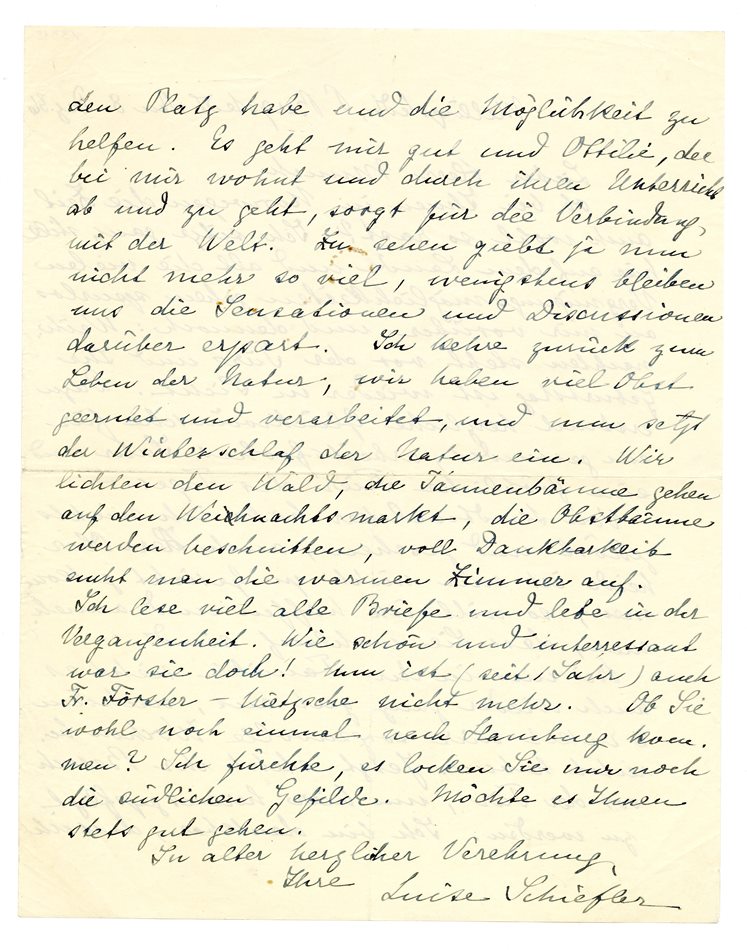 den Platz habe und die Möglichkeit zu
helfen. Es geht mir gut und Ottilie, die
bei mir wohnt und durch ihren Unterricht
ab und zu geht, sorgt für die Verbindung
mit der Welt. Zu sehen giebt ja nun
nicht mehr so viel, wenigstens bleiben
uns die Sensationen und Discussionen
darüber erspart. Ich kehre zurück zum
Leben der Natur, wir haben viel Obst
geerntet und verarbeitet, und nun setzt
der Winterschlaf der Natur ein. Wir
lichten den Wald, die Tannenbäume gehen
auf den Weihnachtsmarkt, die Obstbäume
werden beschnitten, voll Dankbarkeit
sucht man die warmen Zimmer auf.
Ich lese viel alte Briefe und lebe in der
Vergangenheit. Wie schön und interressant
war sie doch! Nun ist (seit 1 Jahr) auch
Fr. Förster – Nietzsche nicht mehr. Ob Sie
wohl noch einmal nach Hamburg kom-
men? Ich fürchte, es locken Sie nur noch
die südlichen Gefilde. Möchte es Ihnen
stets gut gehen.
In alter herzlicher Verehrung,
Ihre Luise Schiefler